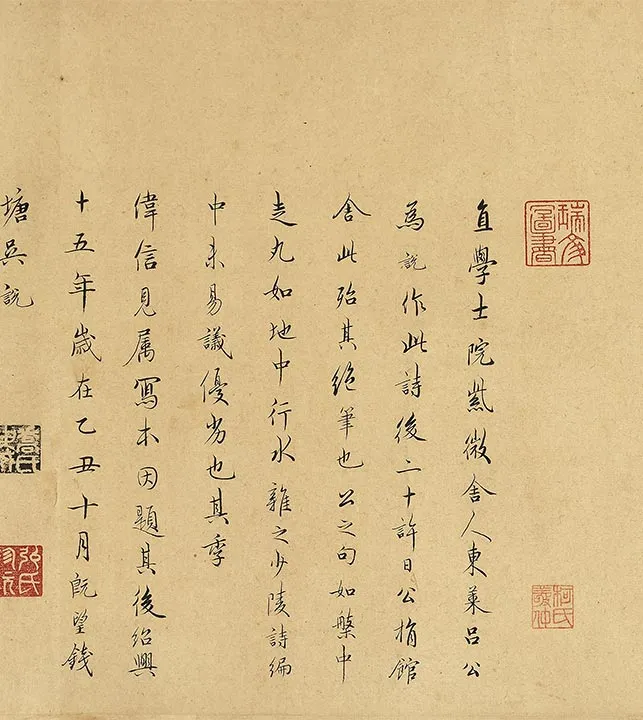 瑞文圖書
柯氏敬仲
直學士院紫微舍人東萊呂公
為說作此詩後二十許日公捐館
舍此殆其絕筆也公之句如槃中
走丸如地中行水雜之少陵詩編
中未易議優劣也其季
偉信見属寫本因題其後紹興
十五年歲在乙丑十月既望錢
塘吳說